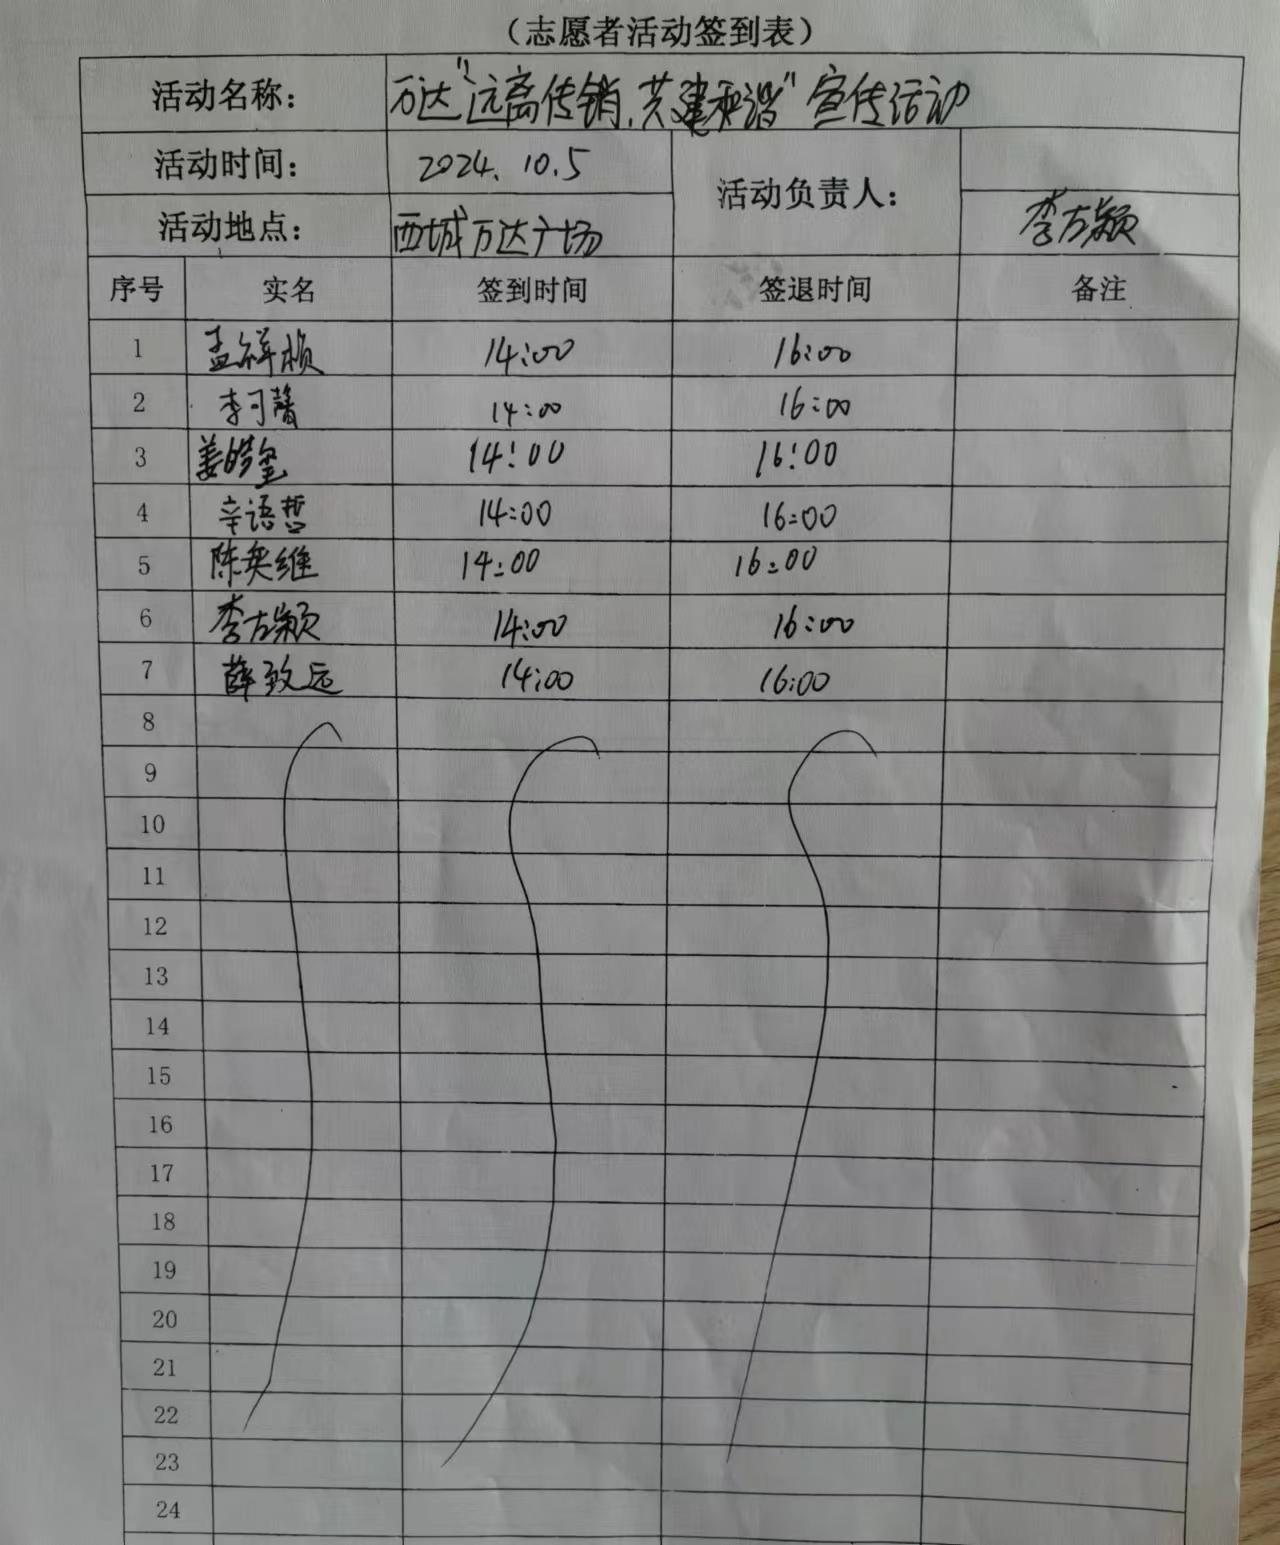 （志愿者活动签到表）
活动名称： 万达“远离传销，共建和谐”宣传活动
活动时间： 2024.10.5 活动负责人：
活动地点： 西城万达广场 李左颖
序号 实名 签到时间 签退时间 备注
1 孟祥桢 14:00 16:00
2 李可馨 14:00 16:00
3 姜皓玺 14:00 16:00
4 辛语哲 14:00 16:00
5 陈奕维 14:00 16:00
6 李左颖 14:00 16:00
7 薛致远 14:00 16:00
8
9
10
11
12
13
14
15
16
17
18
19
20
21
22
23
24